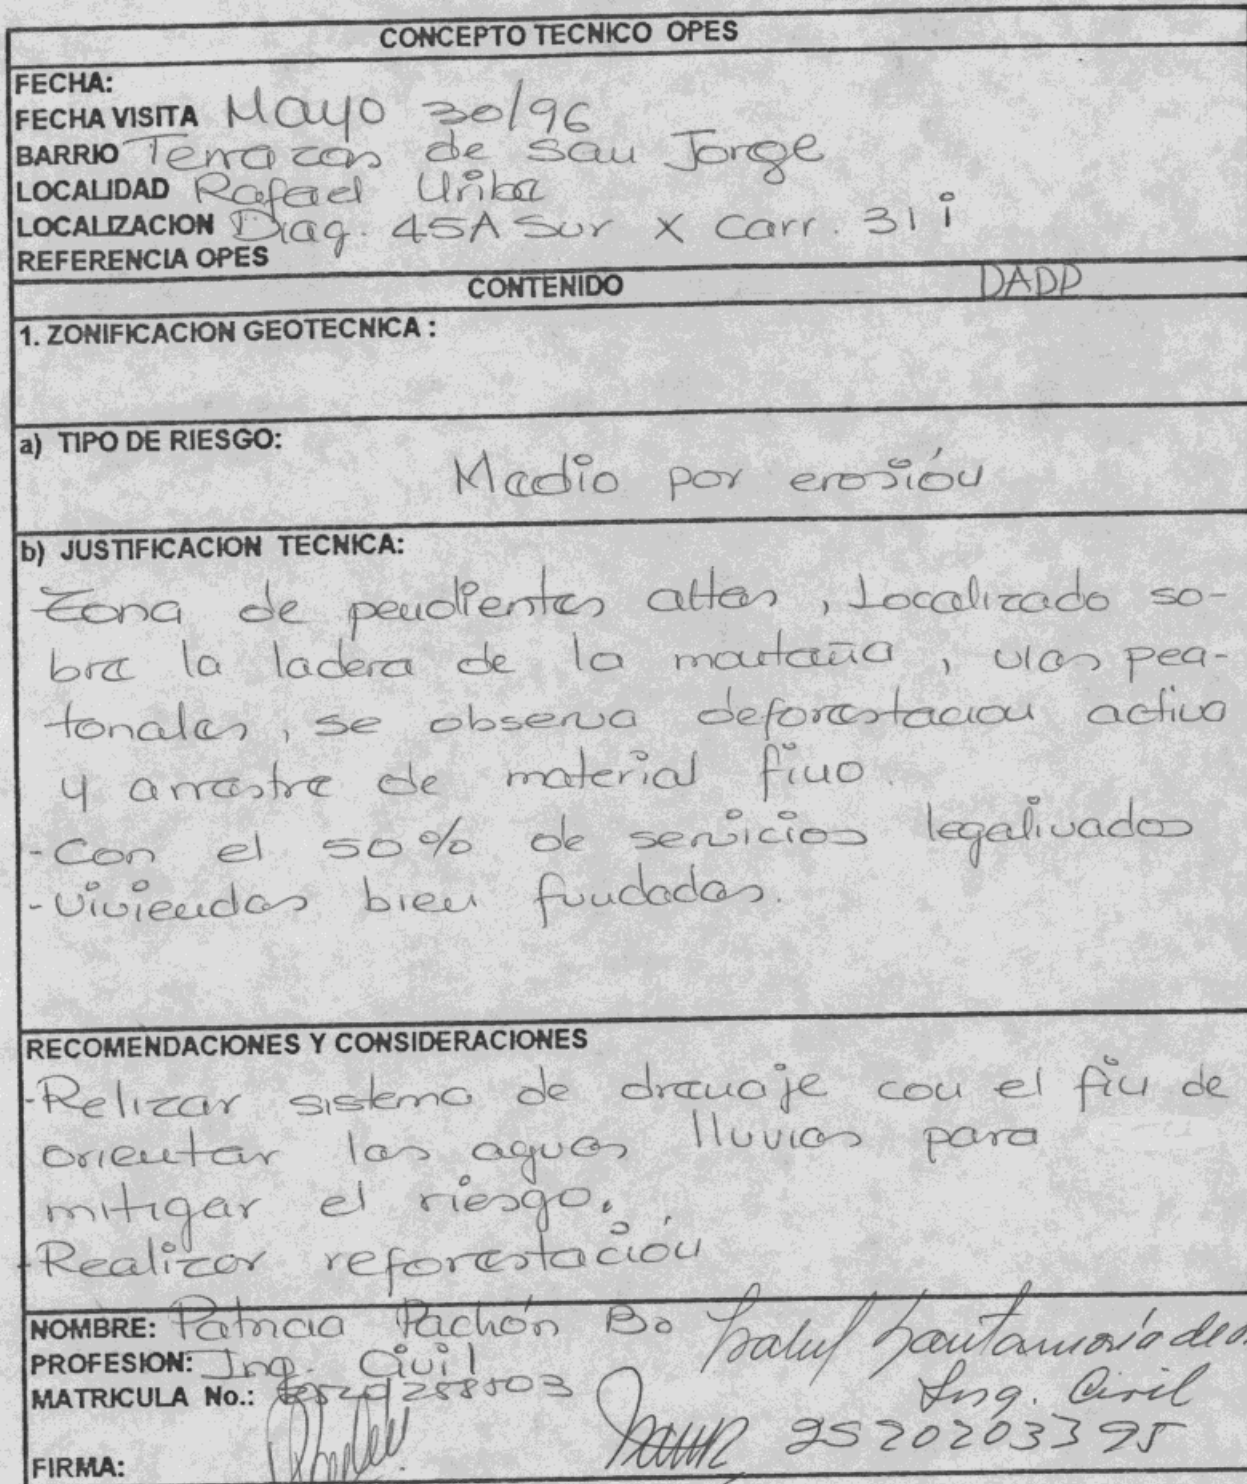 CONCEPTO TECNICO OPES
FECHA:
FECHA VISITA Mayo 30/96
BARRIO Terrazas de San Jorge
LOCALIDAD Rafael Uribe
LOCALIZACION Diag. 45A Sur X Carr. 31 i
REFERENCIA OPES
CONTENIDO DADP
1. ZONIFICACION GEOTECNICA :
a) TIPO DE RIESGO:
Medio por erosión
b) JUSTIFICACION TECNICA:
Zona de pendientes altas, Localizado so-
bre la ladera de la montaña, vias pea-
tonales, se observa deforestacion activa
y arrastre de material fino.
- Con el 50% de servicios legalizados
- Viviendas bien fundadas.
RECOMENDACIONES Y CONSIDERACIONES
-Relizar sistema de drenaje con el fin de
orientar las aguas lluvias para
mitigar el riesgo.
-Realizar reforestación
NOMBRE: Patricia Pachón Bo Isabel Santamaría de
PROFESION: Ing. Civil Ing. Civil
MATRICULA No.: 2520203395
FIRMA: